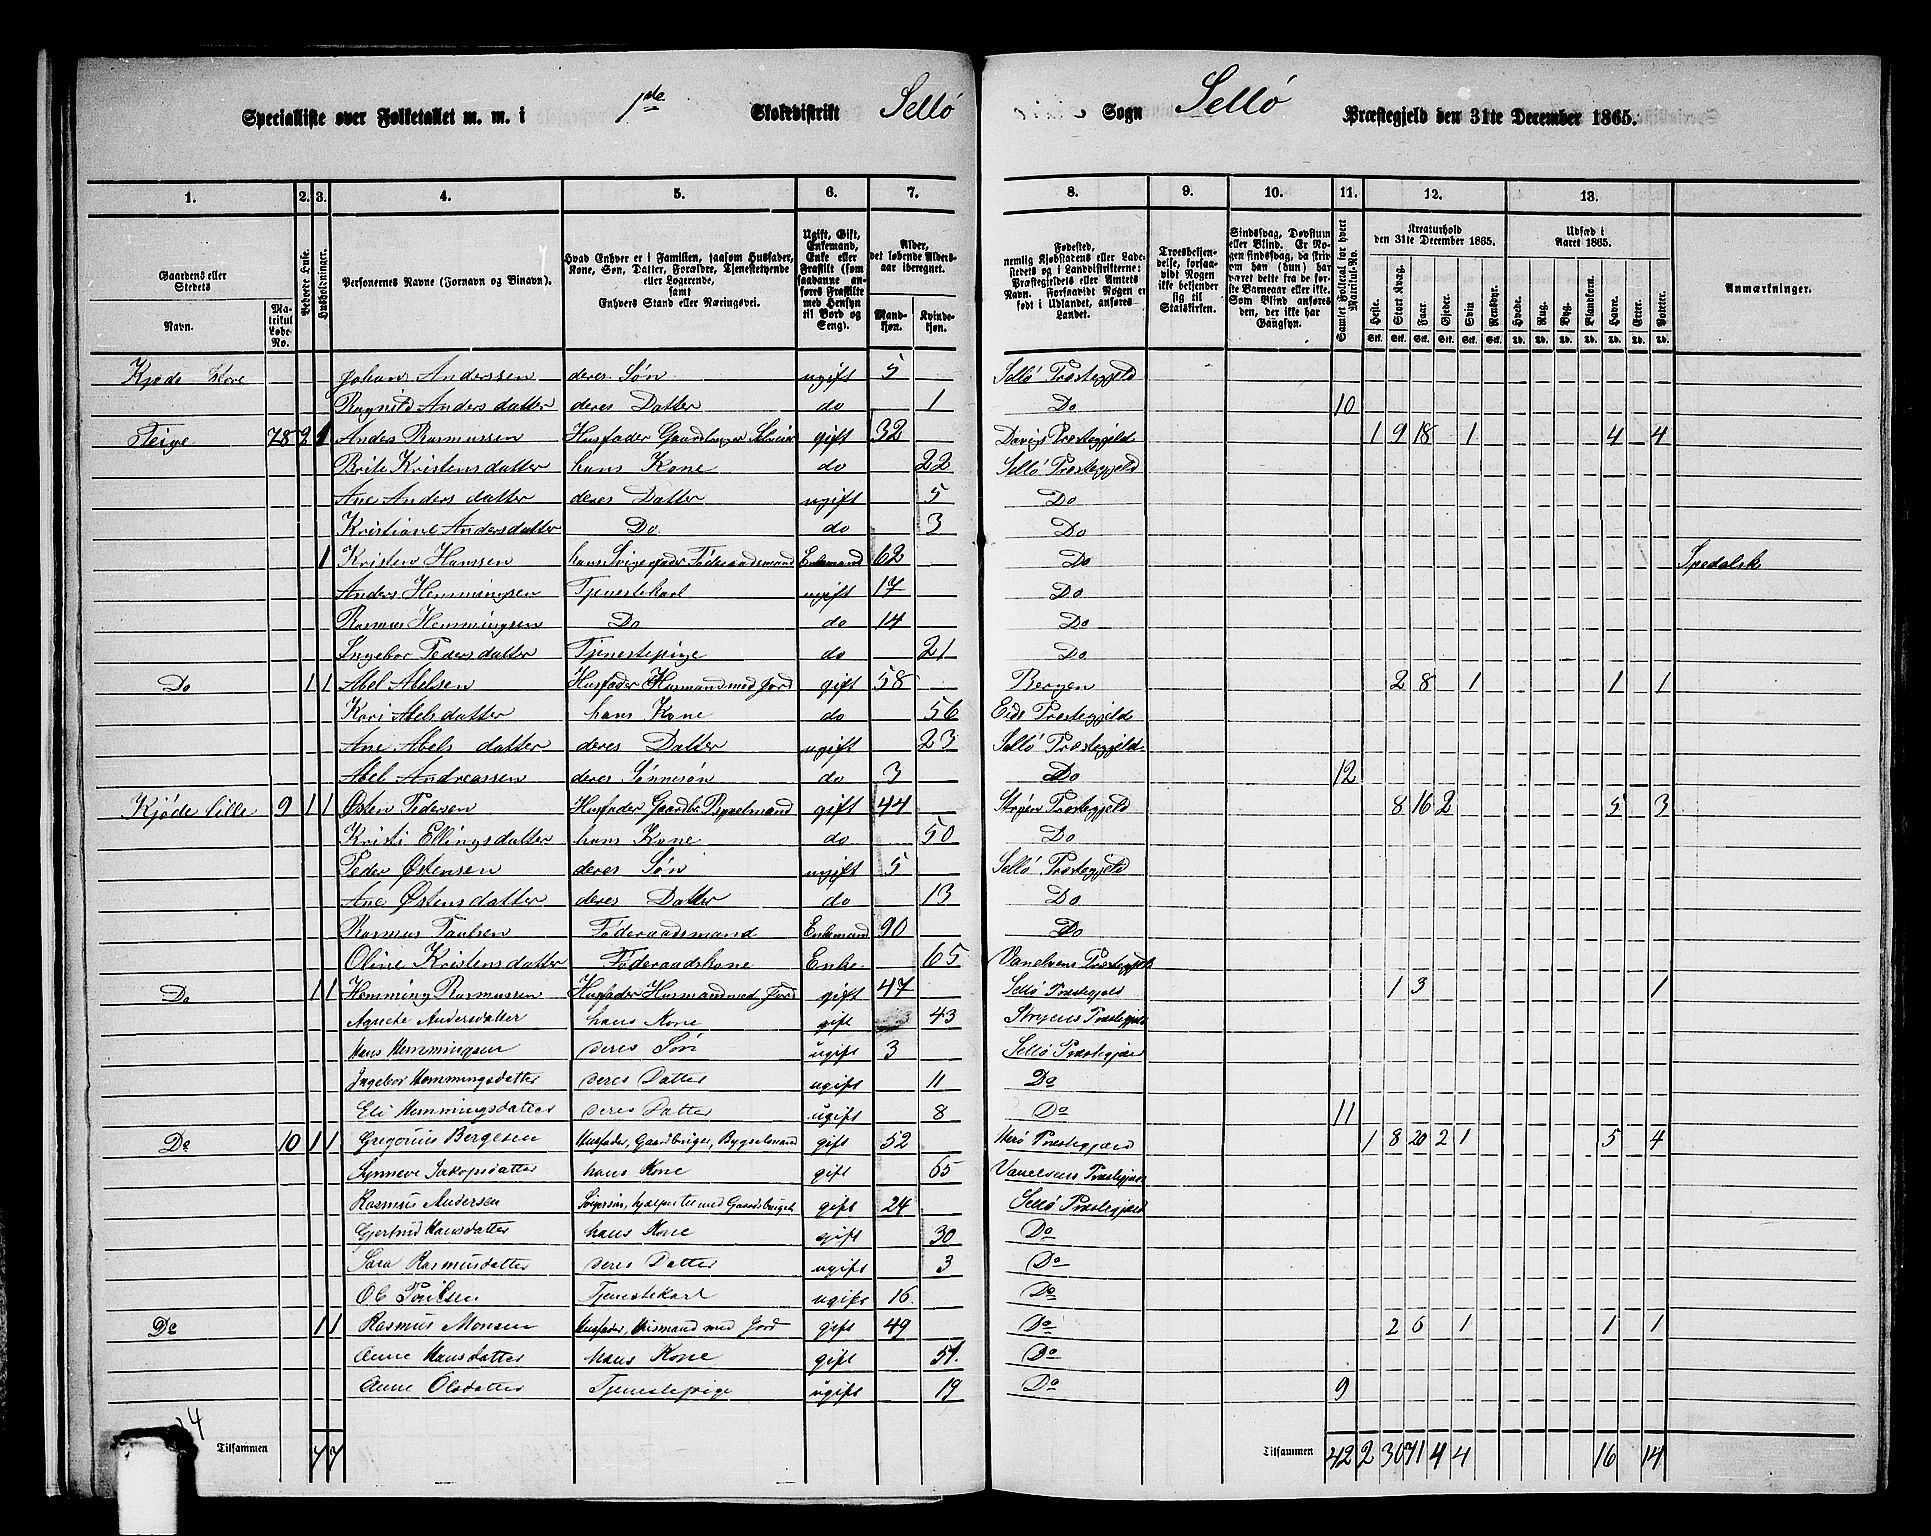 Specialliste over Folketallet m. m. i 1ste Skoledistrikt Sellö Sogn Sellö Præstegjeld den 31te December 1865.
1. 2. 3. 4. 5. 6. 7. 8. 9. 10. 11. 12. 13.
Gaardens eller Stedets Navn. Matrikul Løbe-No. Beboede Huse. Husholdninger. Personernes Navne (Fornavn og Binavn). Hvad Enhver er i Familien, saasom Husfader, Kone, Søn, Datter, Forældre, Tjenestetyende eller Logerende, samt Enhvers Stand eller Næringsvei. Ugift, Gift, Enkemand, Enke eller Fraskilt (som saadanne anføres Fraskilte med Hensyn til Bord og Seng). Alder, det løbende Aldersaar iberegnet. Mandkjøn. Kvindekjøn.
Fødested, nemlig Kjøbstadens eller Ladestedets og i Landdistrikterne: Præstegjeldets eller Amtets Navn. Forsaavidt Nogen er født i Udlandet, anføres Landet. Troesbekjendelse, forsaavidt Nogen ikke bekjender sig til Statskirken. Sindssvag, Døvstum eller Blind. Er Nogen sindssvag, da skrives om han (hun) har været dette fra de første Barneaar eller ikke. Som Blind anføres den, der ikke har Gangsyn. Samlet Folketal for hvert Matrikul-No. Kreaturhold den 31te December 1865. Heste. Stort Kvæg. Faar. Gjeder. Svin. Rensdyr. Udsæd i Aaret 1865. Hvede. Rug. Byg. Blandkorn. Havre. Erter. Poteter. Anmærkninger.
Kjøde Store Johans Anderssen deres Søn ugift 5 Sellö Præstegjeld
Ragnild Andersdatter deres Datter do 1 Do 10
Teige 78 2 1 Anders Rasmussen Husfader Gaardbruger Selveier gift 32 Davigs Præstegjeld 1 9 18 1 4 4
Brite Kristensdatter hans Kone do 22 Sellö Præstegjeld
Ane Anders datter deres Datter ugift 5 Do
Kristiane Andersdatter Do do 3 Do
1 Kristen Hanssen hans Svigerfader Föderaadsmand Enkemand 62 Do Spedalsk
Anders Hemmingsen Tjenestekarl ugift 17 Do
Rasmus Hemmingsen Do do 14 Do
Ingebor Peders datter Tjenestepige do 21 Do
Do 1 1 Abel Abelsen Husfader Husmand med Jord gift 58 Bergen 2 8 1 1 1
Kari Abelsdatter hans Kone do 56 Eids Præstegjeld
Ane Abels datter deres Datter ugift 23 Sellö Præstegjeld
Abel Andreassen deres Sönnesön do 3 Do 12
Kjøde lille 9 1 1 Østen Pedersen Husfader Gaardbr. Bygselmand gift 44 Stryen Præstegjeld 8 16 2 5 3
Kristi Ellingsdatter hans Kone do 50 Do
Peder Østensen deres Søn ugift 5 Sellö Præstegjeld
Ane Østensdatter deres Datter do 13 Do
Rasmus Paulsen Föderaadsmand Enkemand 90 Do
Oline Kristensdatter Föderaadskone Enke 65 Vanelvens Præstegjeld
Do 1 1 Hemming Rasmussen Husfader Husmand med Jord gift 47 Sellö Præstegjeld 1 3 1
Agnethe Andersdatter hans Kone gift 43 Stryens Præstegjeld
Hans Hemmingsen deres Søn ugift 3 Sellö Præstegjæld
Ingebor Hemmingsdatter deres Datter ugift 11 Do
Eli Hemmingsdatter deres Datter ugift 8 Do 11
Do 10 1 1 Gregorius Børgesen Husfader, Gaardbruger, Bygselmand gift 52 Herö Præstegjæld 1 8 20 2 1 5 4
Synneve Jakopsdatter hans Kone gift 65 Vanelvens Præstegjæld
Rasmus Andersen Svigersøn, hjælper til med Gaardsbruget gift 24 Sellö Præstegjæld
Gjertrud Hansdatter hans Kone gift 30 Do
Sara Rasmusdatter deres Datter ugift 3 Do
Ole Poulsen Tjenestekarl ugift 16. Do
Do 1 1 Rasmus Monsen Husfader, Husmand med Jord gift 49 Do 2 6 1 1 1
Anne Hansdatter hans Kone gift 51. Do
Anne Olsdatter Tjenestepige ugift 19 Do 9
34
Tilsammen 7 7 Tilsammen 42 2 30 71 4 4 16 14